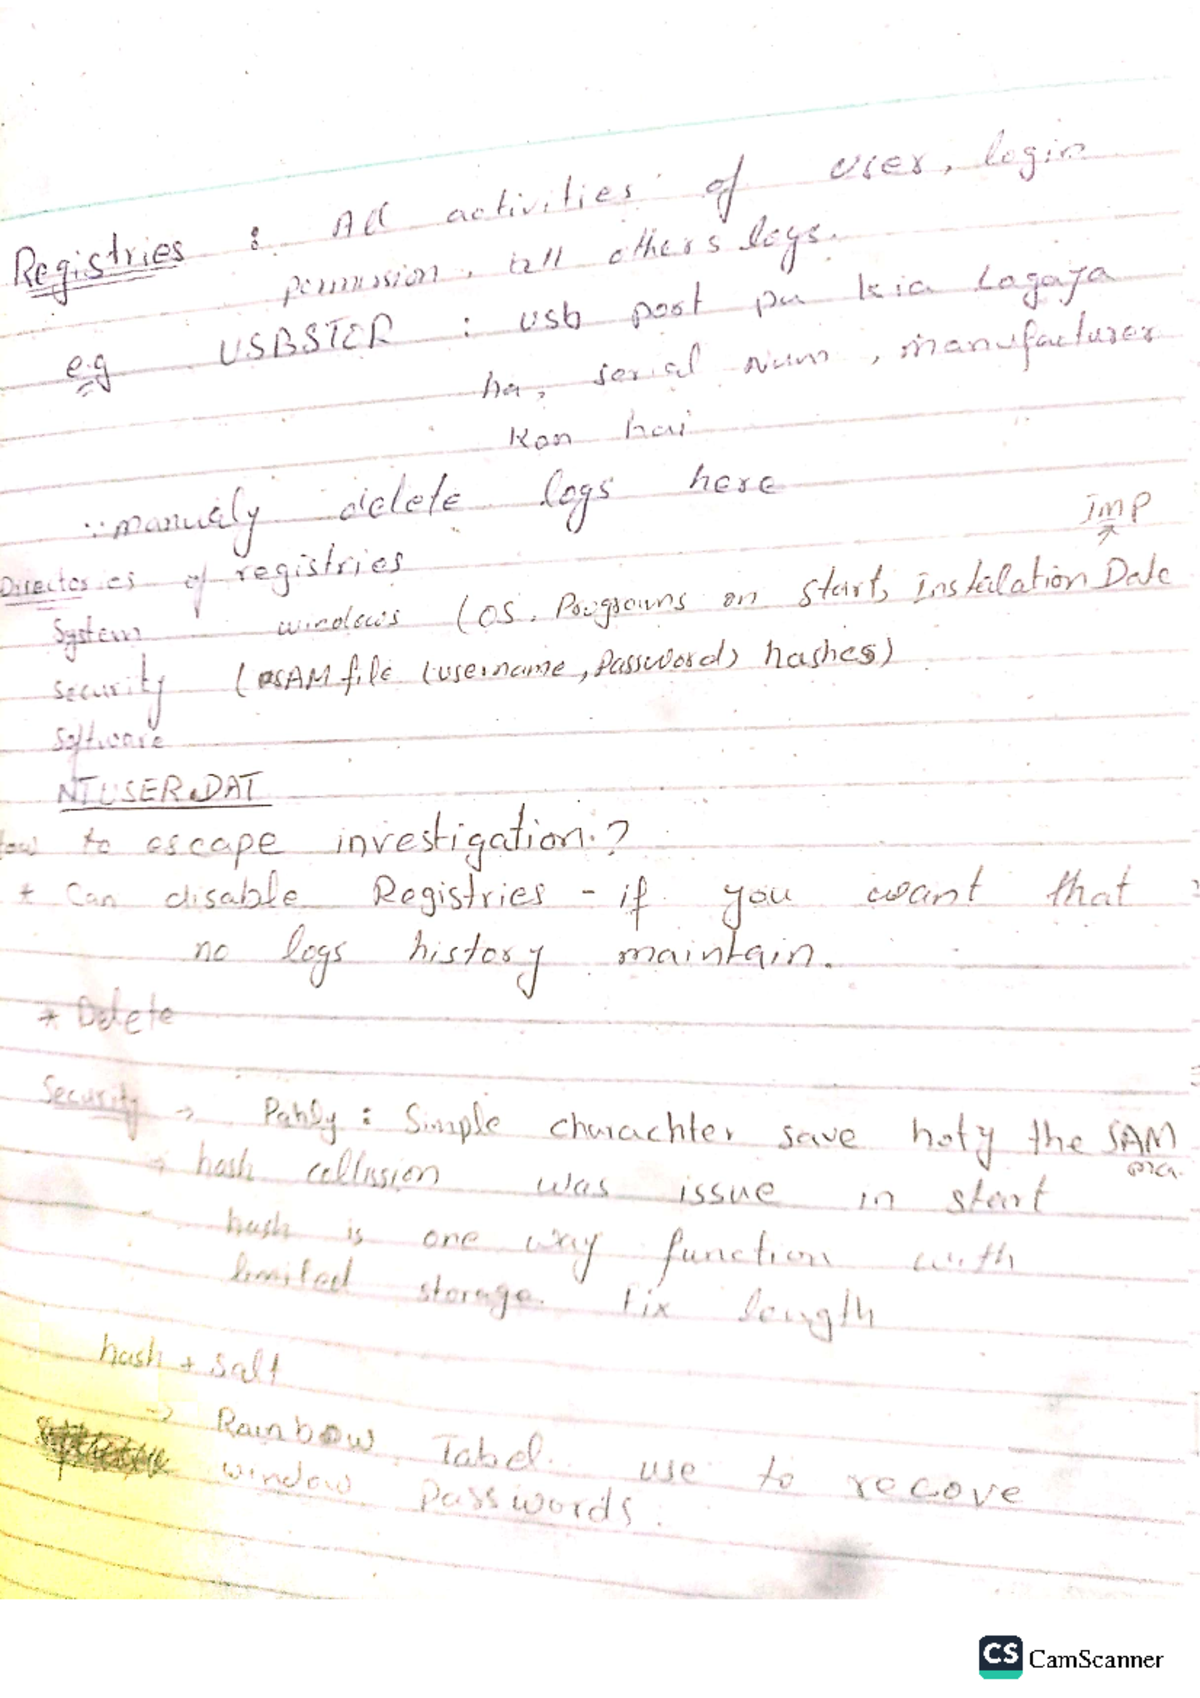 Registries : All activities of user, login
permission, all others logs.
e.g USBSTER : usb port pu kia Lagaya
ha, serial Num, manufacturer
Kon hai
∵ manualy delete logs here
Imp
Directories of registries
System windows (OS, Programs on start, Instalation Date
Security (SAM file (username, Password) hashes)
Software
NTUSER.DAT
How to escape investigation.?
* Can disable Registries - if you want that
no logs history maintain.
* Delete
Security → Pahly : Simple charachter save hoty the SAM
→ hash collission was issue in start
hash is one way function with
limited storage. Fix length
hash + salt
→ Rainbow Tabel. use to recove
window Passwords.
CS CamScanner